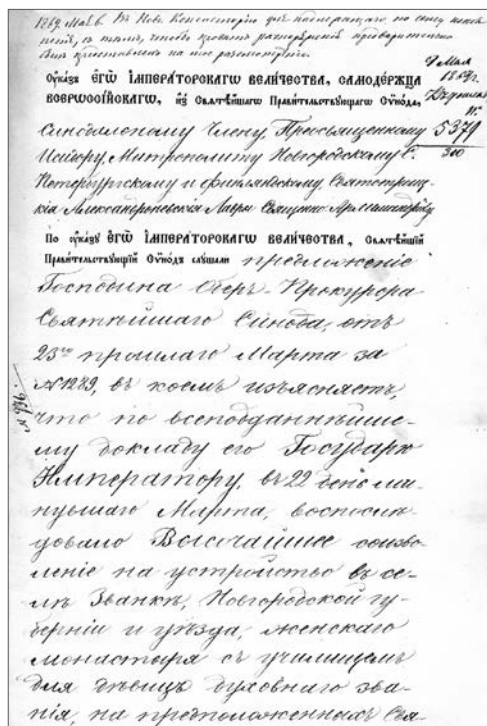 1869 Мая 8. Въ Нов. Консисторію для надлежащаго, по сему
1869.
УКАЗЪ ЕГѠ ІМПЕРАТОРСКАГѠ ВЕЛИЧЕСТВА, САМОДЕРЖЦА
ВСЕРѠССІЙСКАГѠ, ИЗ СВѦТѢЙШАГѠ ПРАВИТЕЛЬСТВУЮЩАГѠ СѴНОДА,
Синодальному Члену, Преосвященному
5379
Исидору, Митрополиту Новгородскому С.
Петербургскому и Финляндскому, Святотроиц-
кія Александроневскія Лавры Священно Архимандриту
По указу ЕГѠ ІМПЕРАТОРСКАГѠ ВЕЛИЧЕСТВА, Свѧтѣйшій
Правительствующій Сѵнодъ слушали предложеніе
Господина Оберъ-Прокурора
Святѣйшаго Синода, отъ
23го прошлаго Марта за
№ 1289, въ коемъ изъясняетъ,
№ 936.
что по всеподданнѣйше-
му докладу его Государю
Императору, въ 22 день ми-
нувшаго Марта, воспослѣ-
довало Высочайшее соизво-
леніе на устройство въ се-
лѣ Званкѣ, Новгородской гу-
берніи и уѣзда, женскаго
монастыря съ училищемъ
для дѣвицъ духовнаго зва-
нія, на предположенныхъ Свя-